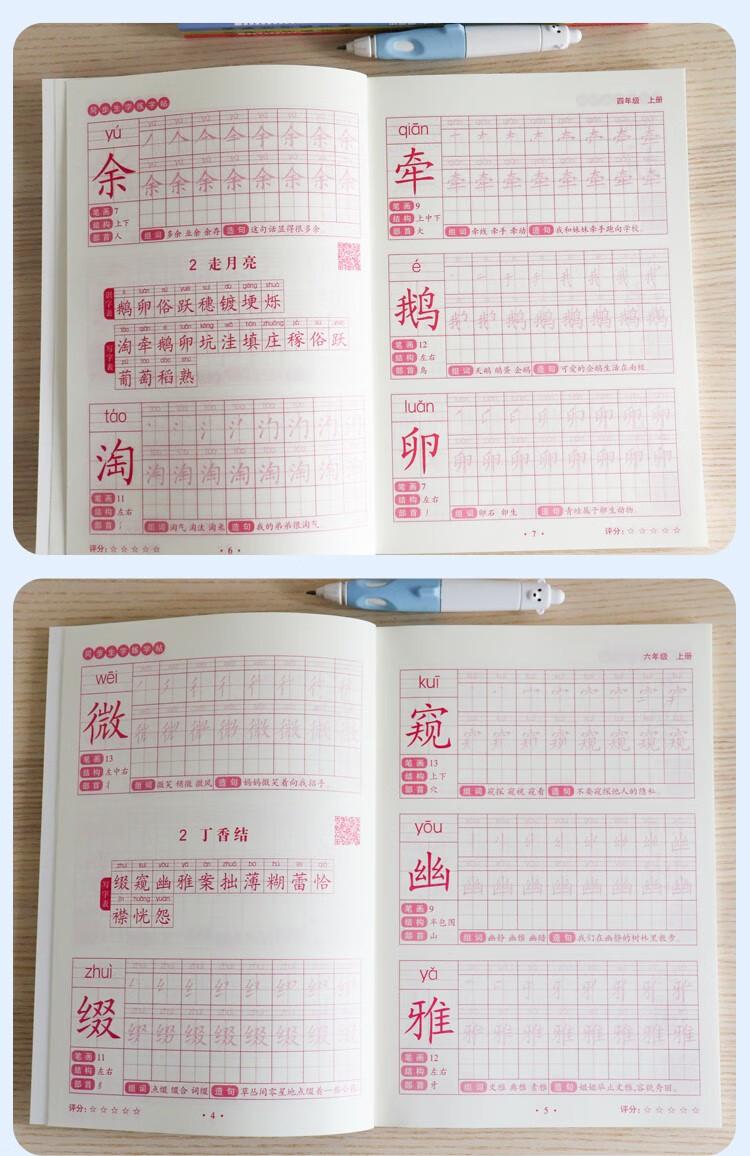 同步生字练字帖
yú
余
笔画 7
结构 上下
部首 人
组词 多余 业余 余存 造句 这句话显得很多余。
2 走月亮
识字表
é luǎn sú yuè suì dù gěng shuò
鹅卵俗跃穗镀埂烁
写字表
táo qiān é luǎn kēng wā tián zhuāng jià sú yuè
淘牵鹅卵坑洼填庄稼俗跃
pú táo dào shú
葡萄稻熟
táo
淘
笔画 11
结构 左右
部首 氵
组词 淘气 淘汰 淘米 造句 我的弟弟很淘气
评分: ☆☆☆☆☆
·6·
四年级 上册
qiān
牵
笔画 9
结构 上中下
部首 大
组词 牵线 牵手 牵动 造句 我和妹妹牵手跑向学校。
é
鹅
笔画 12
结构 左右
部首 鸟
组词 天鹅 鹅蛋 企鹅 造句 可爱的企鹅生活在南极。
luǎn
卵
笔画 7
结构 左右
部首 丿
组词 卵石 卵生 造句 青蛙属于卵生动物。
·7·
评分: ☆☆☆☆☆
同步生字练字帖
wēi
微
笔画 13
结构 左中右
部首 彳
组词 微笑 稍微 微风 造句 妈妈微笑着向我招手。
2 丁香结
写字表
zhuì kuī yōu yǎ àn zhuō bó hú lěi qià
缀窥幽雅案拙薄糊蕾恰
jīn huǎng yuàn
襟恍怨
zhuì
缀
笔画 11
结构 左右
部首 纟
组词 点缀 缀合 词缀 造句 草丛间零星地点缀着一些小花
评分: ☆☆☆☆☆
·4·
六年级 上册
kuī
窥
笔画 13
结构 上下
部首 穴
组词 窥探 窥视 窥看 造句 不要窥探他人的隐私。
yōu
幽
笔画 9
结构 半包围
部首 山
组词 幽静 幽雅 幽暗 造句 我们在幽静的树林里散步。
yǎ
雅
笔画 12
结构 左右
部首 牙
组词 文雅 典雅 素雅 造句 姐姐举止文雅，容貌秀丽。
·5·
评分: ☆☆☆☆☆